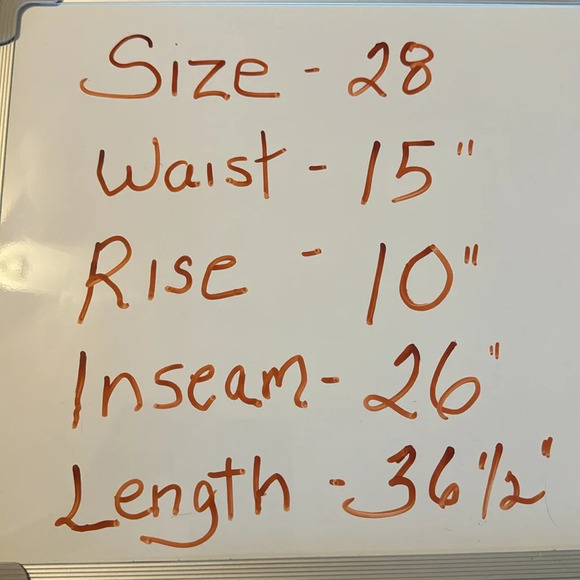 Size - 28
Waist - 15"
Rise - 10"
Inseam - 26"
Length - 36 1/2"